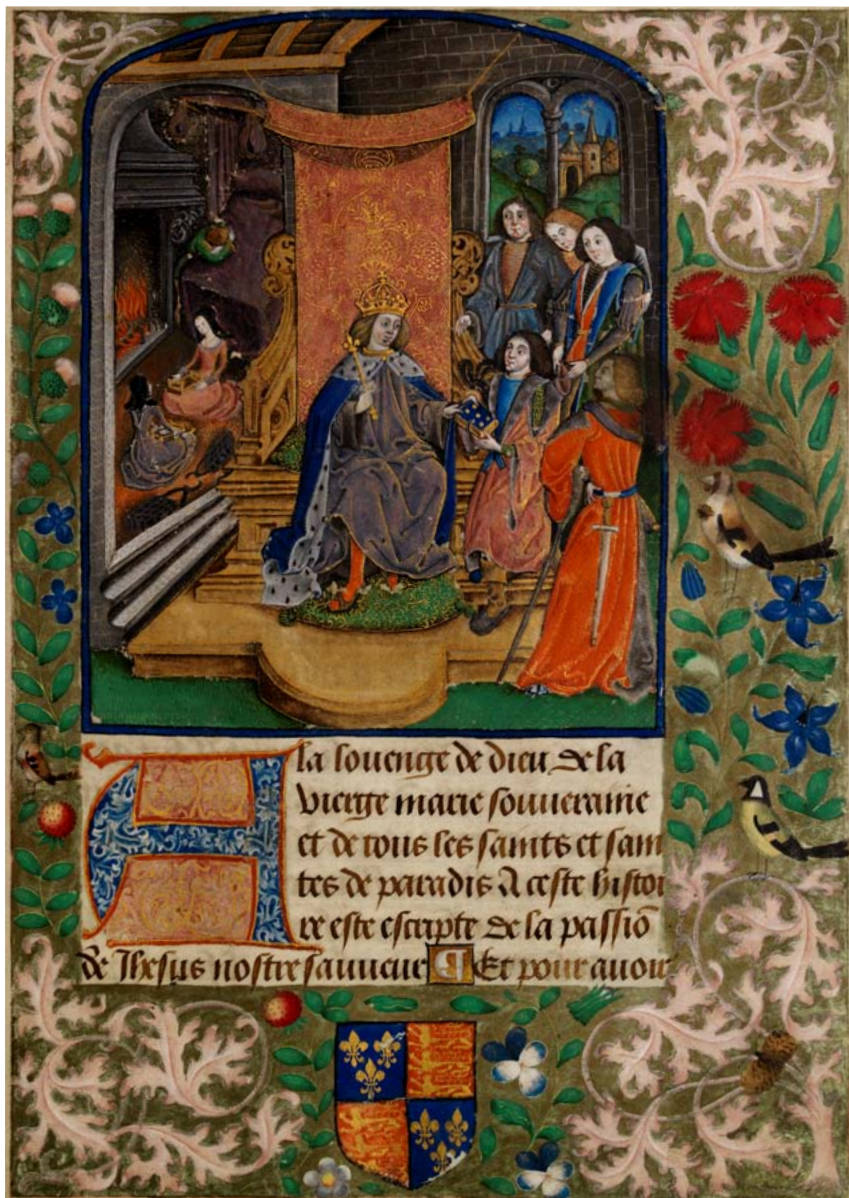 A la louenge de dieu de la
vierge marie souveraine
et de tous les saints et sain
tes de paradis A ceste histoi
re este escripte de la passiō
de Jhesus nostre sauueur ¶ Et pour auoir